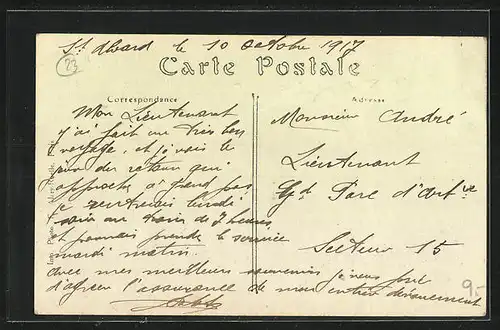 St. Alvard le 10 octobre 1917
23
Carte Postale
Correspondance
Adresse
Mon Lieutenant
J'ai fait un très bon
voyage, et je vois le
jour du retour qui
approche à grand pas
je rentrerai lundi
soir au train de 7 heures
et pourrais prendre le service
mardi matin.
avec mes meilleurs souvenirs je vous prie
d'agréer l'assurance de mon entier dévouement
Monsieur André
Lieutenant
Gd Parc d'Artie
Secteur 15
9.-